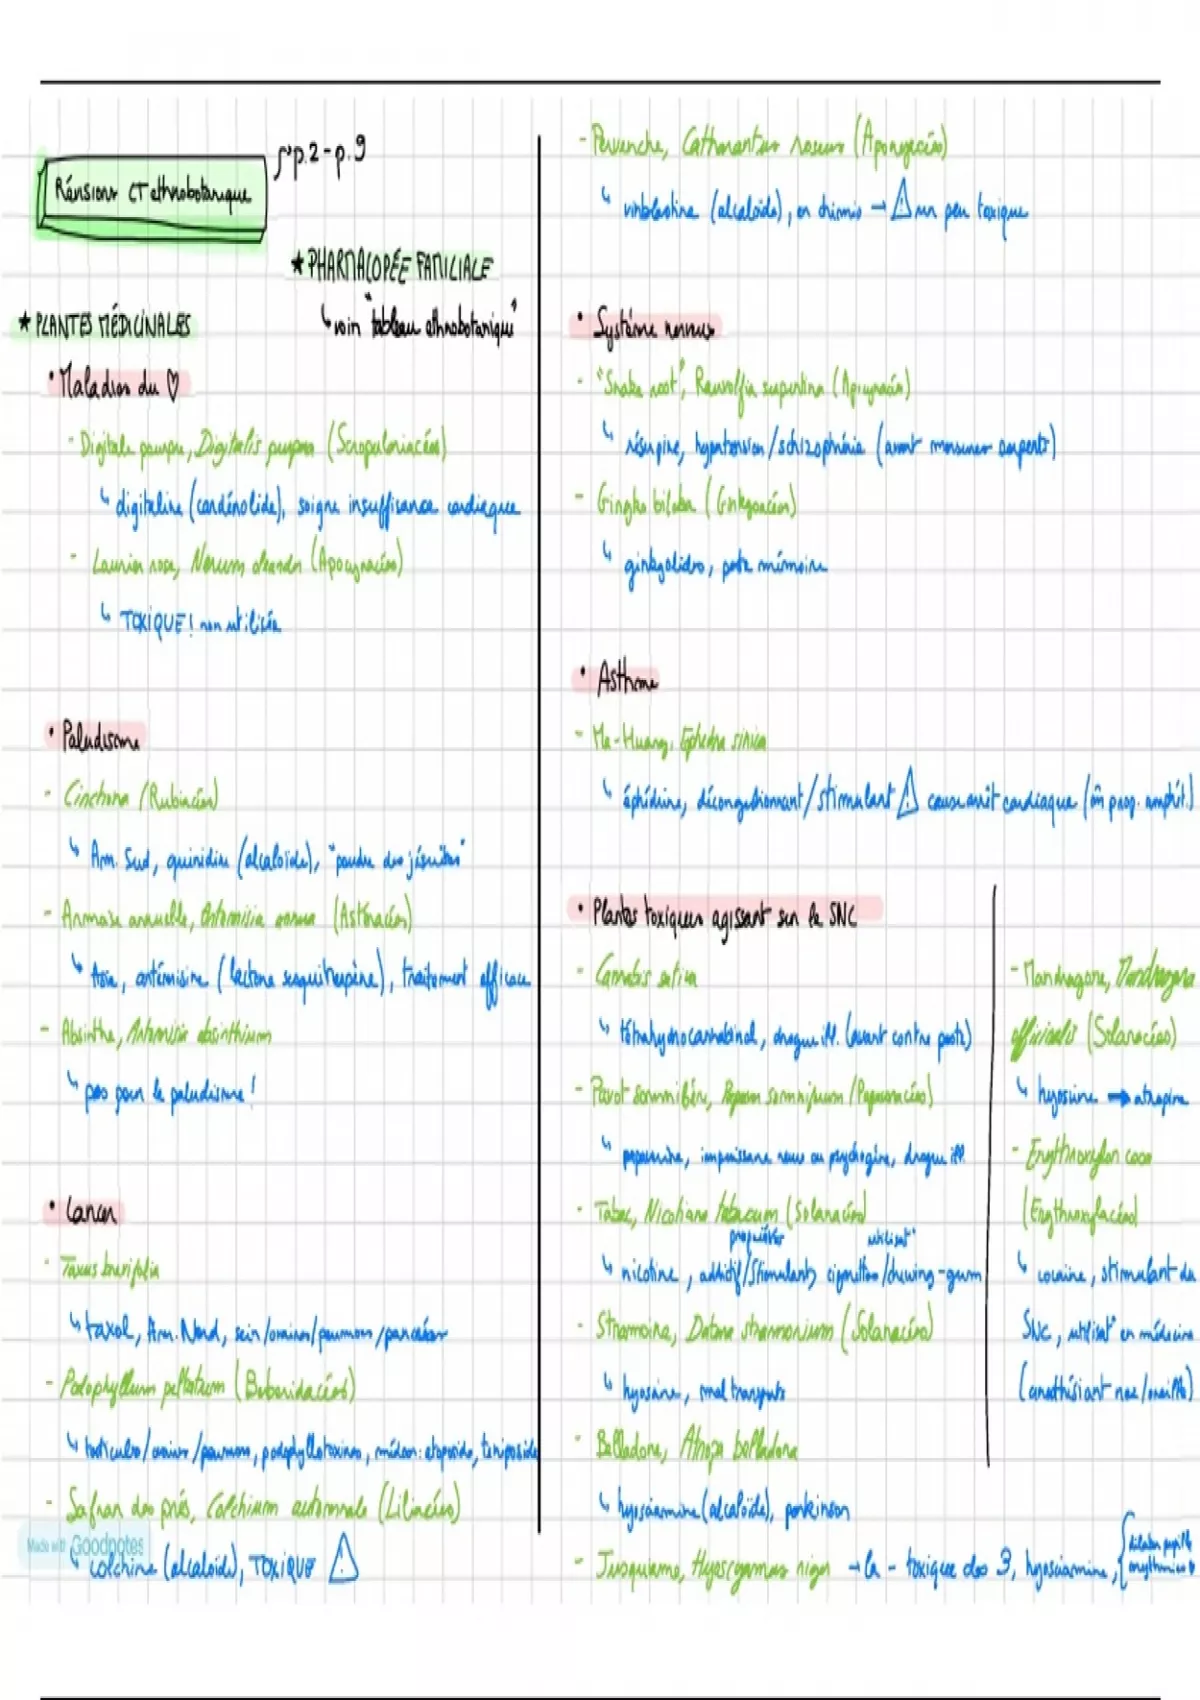 Révisions CT ethnobotanique
p.2-p.9
★ PHARMACOPÉE FAMILIALE
↳ voir "tableau ethnobotanique"
★ PLANTES MÉDICINALES
• Maladies du ♡
- Digitale pourpre, Digitalis purpurea (Scropulariacées)
↳ digitaline (cardénolide), soigne insuffisance cardiaque
- Laurier rose, Nerium oleander (Apocynacées)
↳ TOXIQUE! non utilisée
• Paludisme
- Cinchona (Rubiacées)
↳ Am. Sud, quinidine (alcaloïde), "poudre des jésuites"
- Armoise annuelle, Artemisia annua (Astéracées)
↳ Asie, artémisine (lactone sesquiterpène), traitement efficace
- Absinthe, Artemisia absinthium
↳ pas pour le paludisme!
• Cancer
- Taxus brevifolia
↳ taxol, Am. Nord, sein/ovaires/poumons/pancréas
- Podophyllum peltatum (Berberidacées)
↳ testicules/ovaires/poumons, podophyllotoxines, étoposide, teniposide
- Safran des prés, Colchicum automnale (Liliacées)
Made with Goodnotes
↳ colchine (alcaloïde), TOXIQUE ⚠
- Pervenche, Catharantus roseus (Apocynacées)
↳ vinblastine (alcaloïde), en chimio → ⚠ un peu toxique
• Système nerveux
- "Snake root", Rauvolfia serpentina (Apocynacées)
↳ réserpine, hypertension/schizophrénie (avant morsures serpents)
- Gingko biloba (Ginkgoacées)
↳ ginkgolides, perte mémoire
• Asthme
- Ma-Huang, Ephedra sinica
↳ éphédrine, décongestionnant/stimulant ⚠ cause arrêt cardiaque (m̂ prop. amphét.)
• Plantes toxiques agissant sur le SNC
- Cannabis sativa
↳ tétrahydrocannabinol, drogue ill. (avant contre peste)
- Pavot somnifère, Papaver somniferum (Papaveracées)
↳ papavérine, impuissance nerv ou psychogène, drogue ill.
- Tabac, Nicotiana tabacum (Solanacées)
propriétés utilisat°
↳ nicotine, additif/stimulant, cigarettes/chewing-gum
- Stramoine, Datura stramonium (Solanacées)
↳ hyosine, mal transports
- Belladone, Atropa belladona
↳ hyosciamine (alcaloïde), parkinson
- Jusquiame, Hyoscyamus niger → la - toxique des 3, hyosciamine,
dilate pupille
- Mandragore, Mandragora
officinalis (Solanacées)
↳ hyosine → atropine
- Erythroxylon coca
(Erythroxylacées)
↳ cocaïne, stimulant du
SNC, utilisat° en médecine
(anesthésiant nez/oreille)